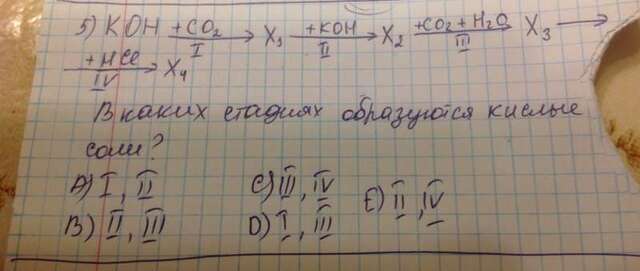 5) KOH +CO₂ I → X₁ +KOH II → X₂ +CO₂+H₂O III → X₃ →
+HCl IV → X₄
В каких стадиях образуются кислые
соли?
A) I, II C) III, IV E) II, IV
B) II, III D) I, III